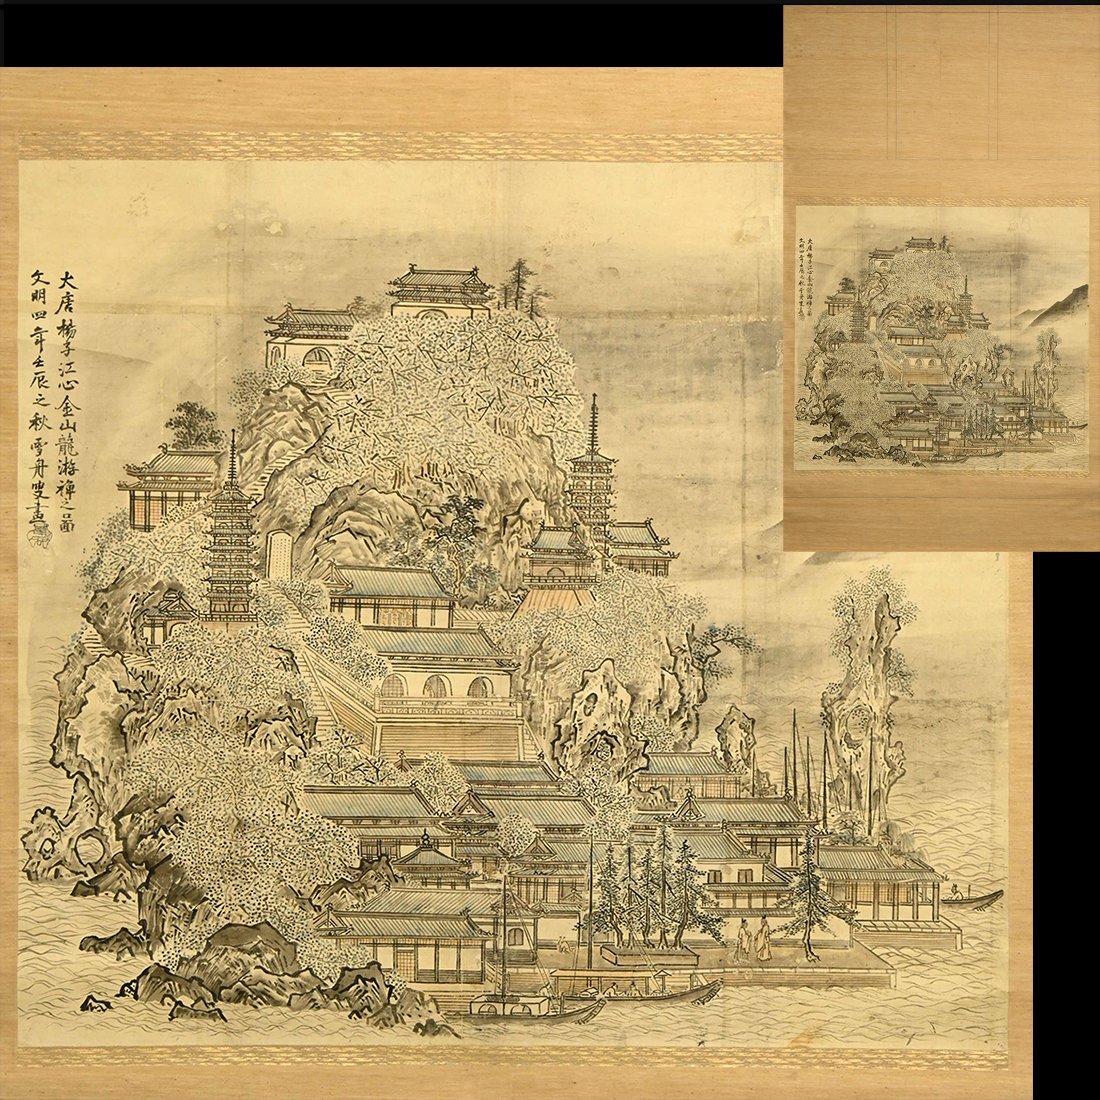 大唐楊子江心金山龍游禅之啚
文明四年壬辰之秋雪舟叟畫